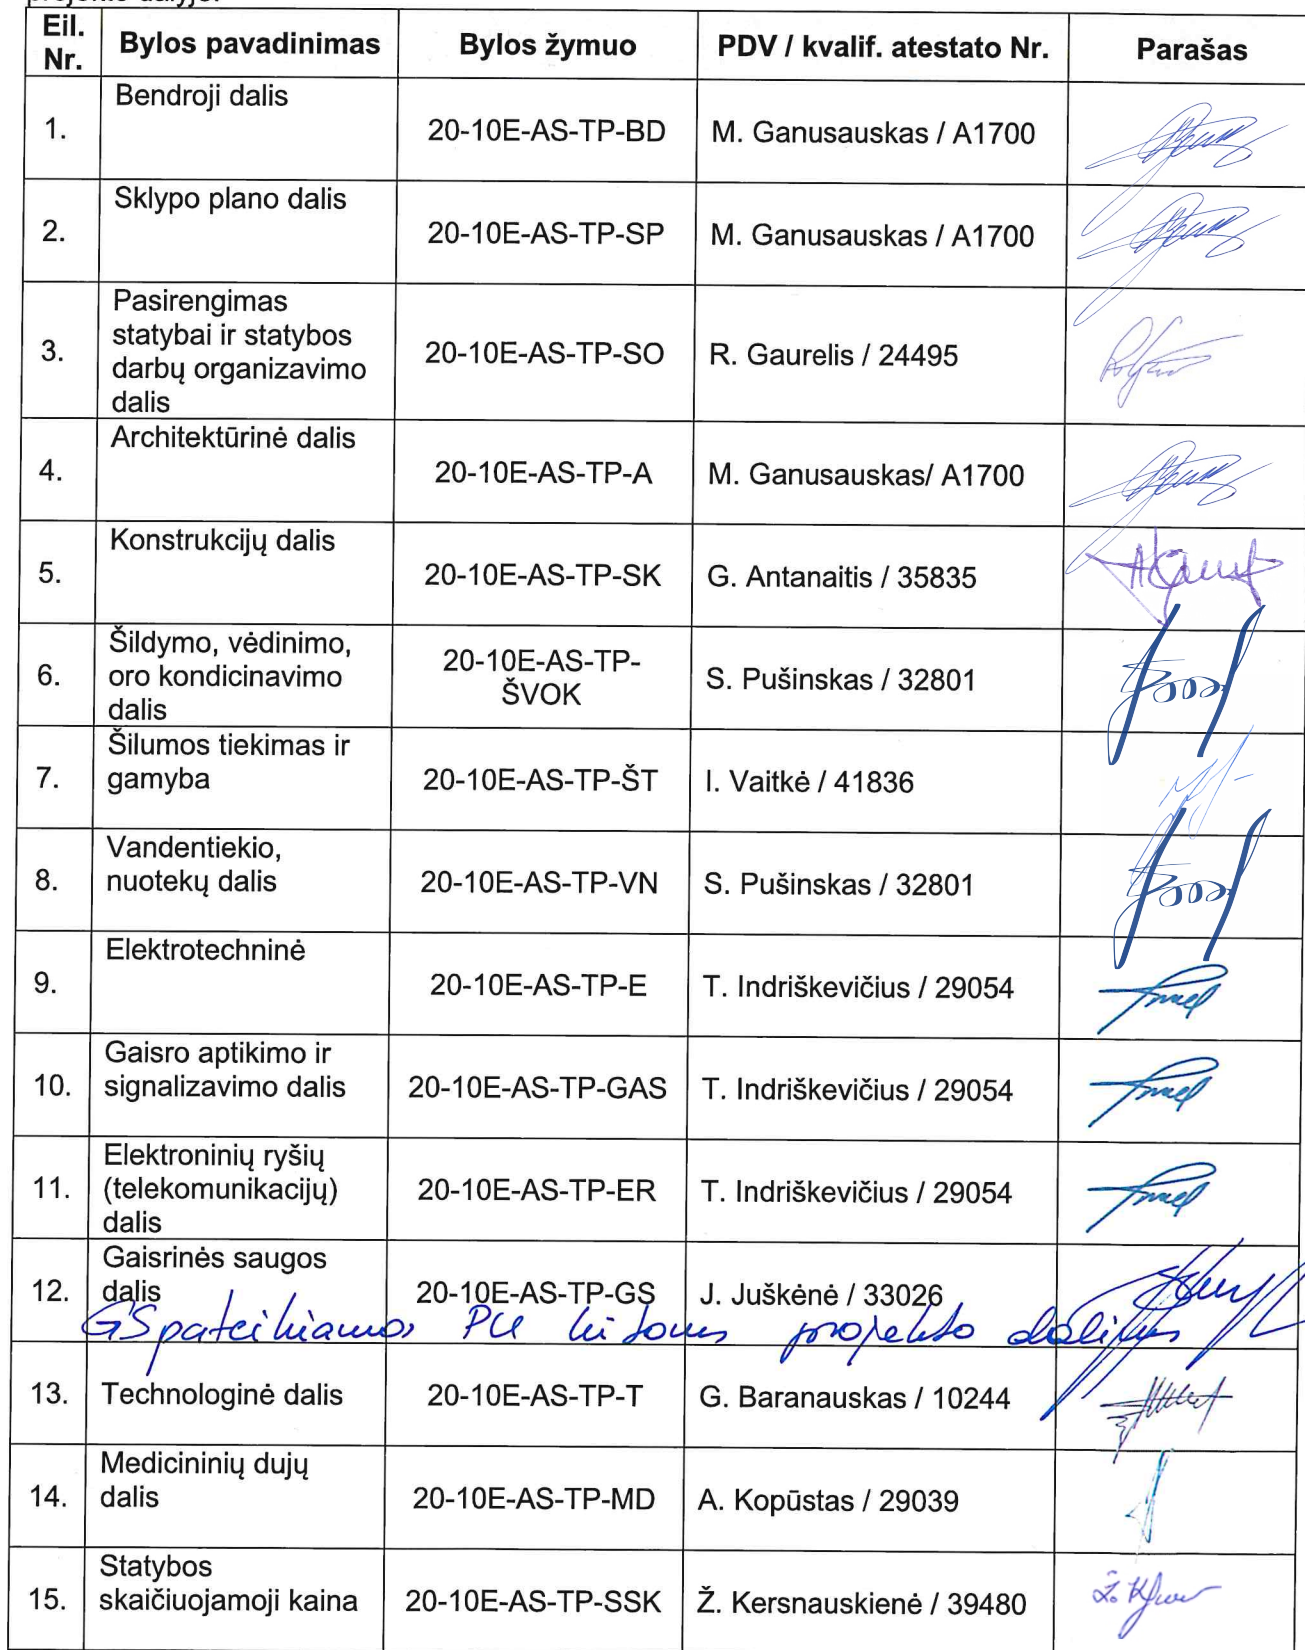 Eil. Nr. Bylos pavadinimas Bylos žymuo PDV / kvalif. atestato Nr. Parašas
1. Bendroji dalis 20-10E-AS-TP-BD M. Ganusauskas / A1700
2. Sklypo plano dalis 20-10E-AS-TP-SP M. Ganusauskas / A1700
3. Pasirengimas statybai ir statybos darbų organizavimo dalis 20-10E-AS-TP-SO R. Gaurelis / 24495
4. Architektūrinė dalis 20-10E-AS-TP-A M. Ganusauskas/ A1700
5. Konstrukcijų dalis 20-10E-AS-TP-SK G. Antanaitis / 35835
6. Šildymo, vėdinimo, oro kondicinavimo dalis 20-10E-AS-TP-ŠVOK S. Pušinskas / 32801
7. Šilumos tiekimas ir gamyba 20-10E-AS-TP-ŠT I. Vaitkė / 41836
8. Vandentiekio, nuotekų dalis 20-10E-AS-TP-VN S. Pušinskas / 32801
9. Elektrotechninė 20-10E-AS-TP-E T. Indriškevičius / 29054
10. Gaisro aptikimo ir signalizavimo dalis 20-10E-AS-TP-GAS T. Indriškevičius / 29054
11. Elektroninių ryšių (telekomunikacijų) dalis 20-10E-AS-TP-ER T. Indriškevičius / 29054
12. Gaisrinės saugos dalis 20-10E-AS-TP-GS J. Juškėnė / 33026
GS pateikiamos kitoms projekto dalims
13. Technologinė dalis 20-10E-AS-TP-T G. Baranauskas / 10244
14. Medicininių dujų dalis 20-10E-AS-TP-MD A. Kopūstas / 29039
15. Statybos skaičiuojamoji kaina 20-10E-AS-TP-SSK Ž. Kersnauskienė / 39480